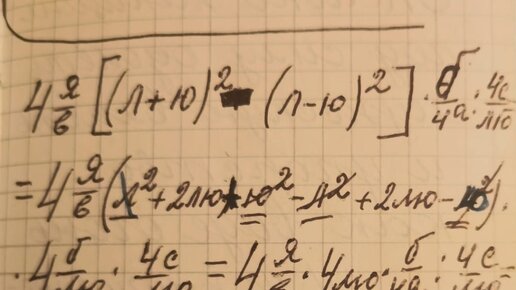 4 я/в [(л+ю)² - (л-ю)²] · б/ча · 4с/лю
= 4 я/в (л² + 2лю + ю² - л² + 2лю - ю²) ·
· 4 б/лю · 4с = 4 я/в · 4лю · б/ча · 4с/лю =